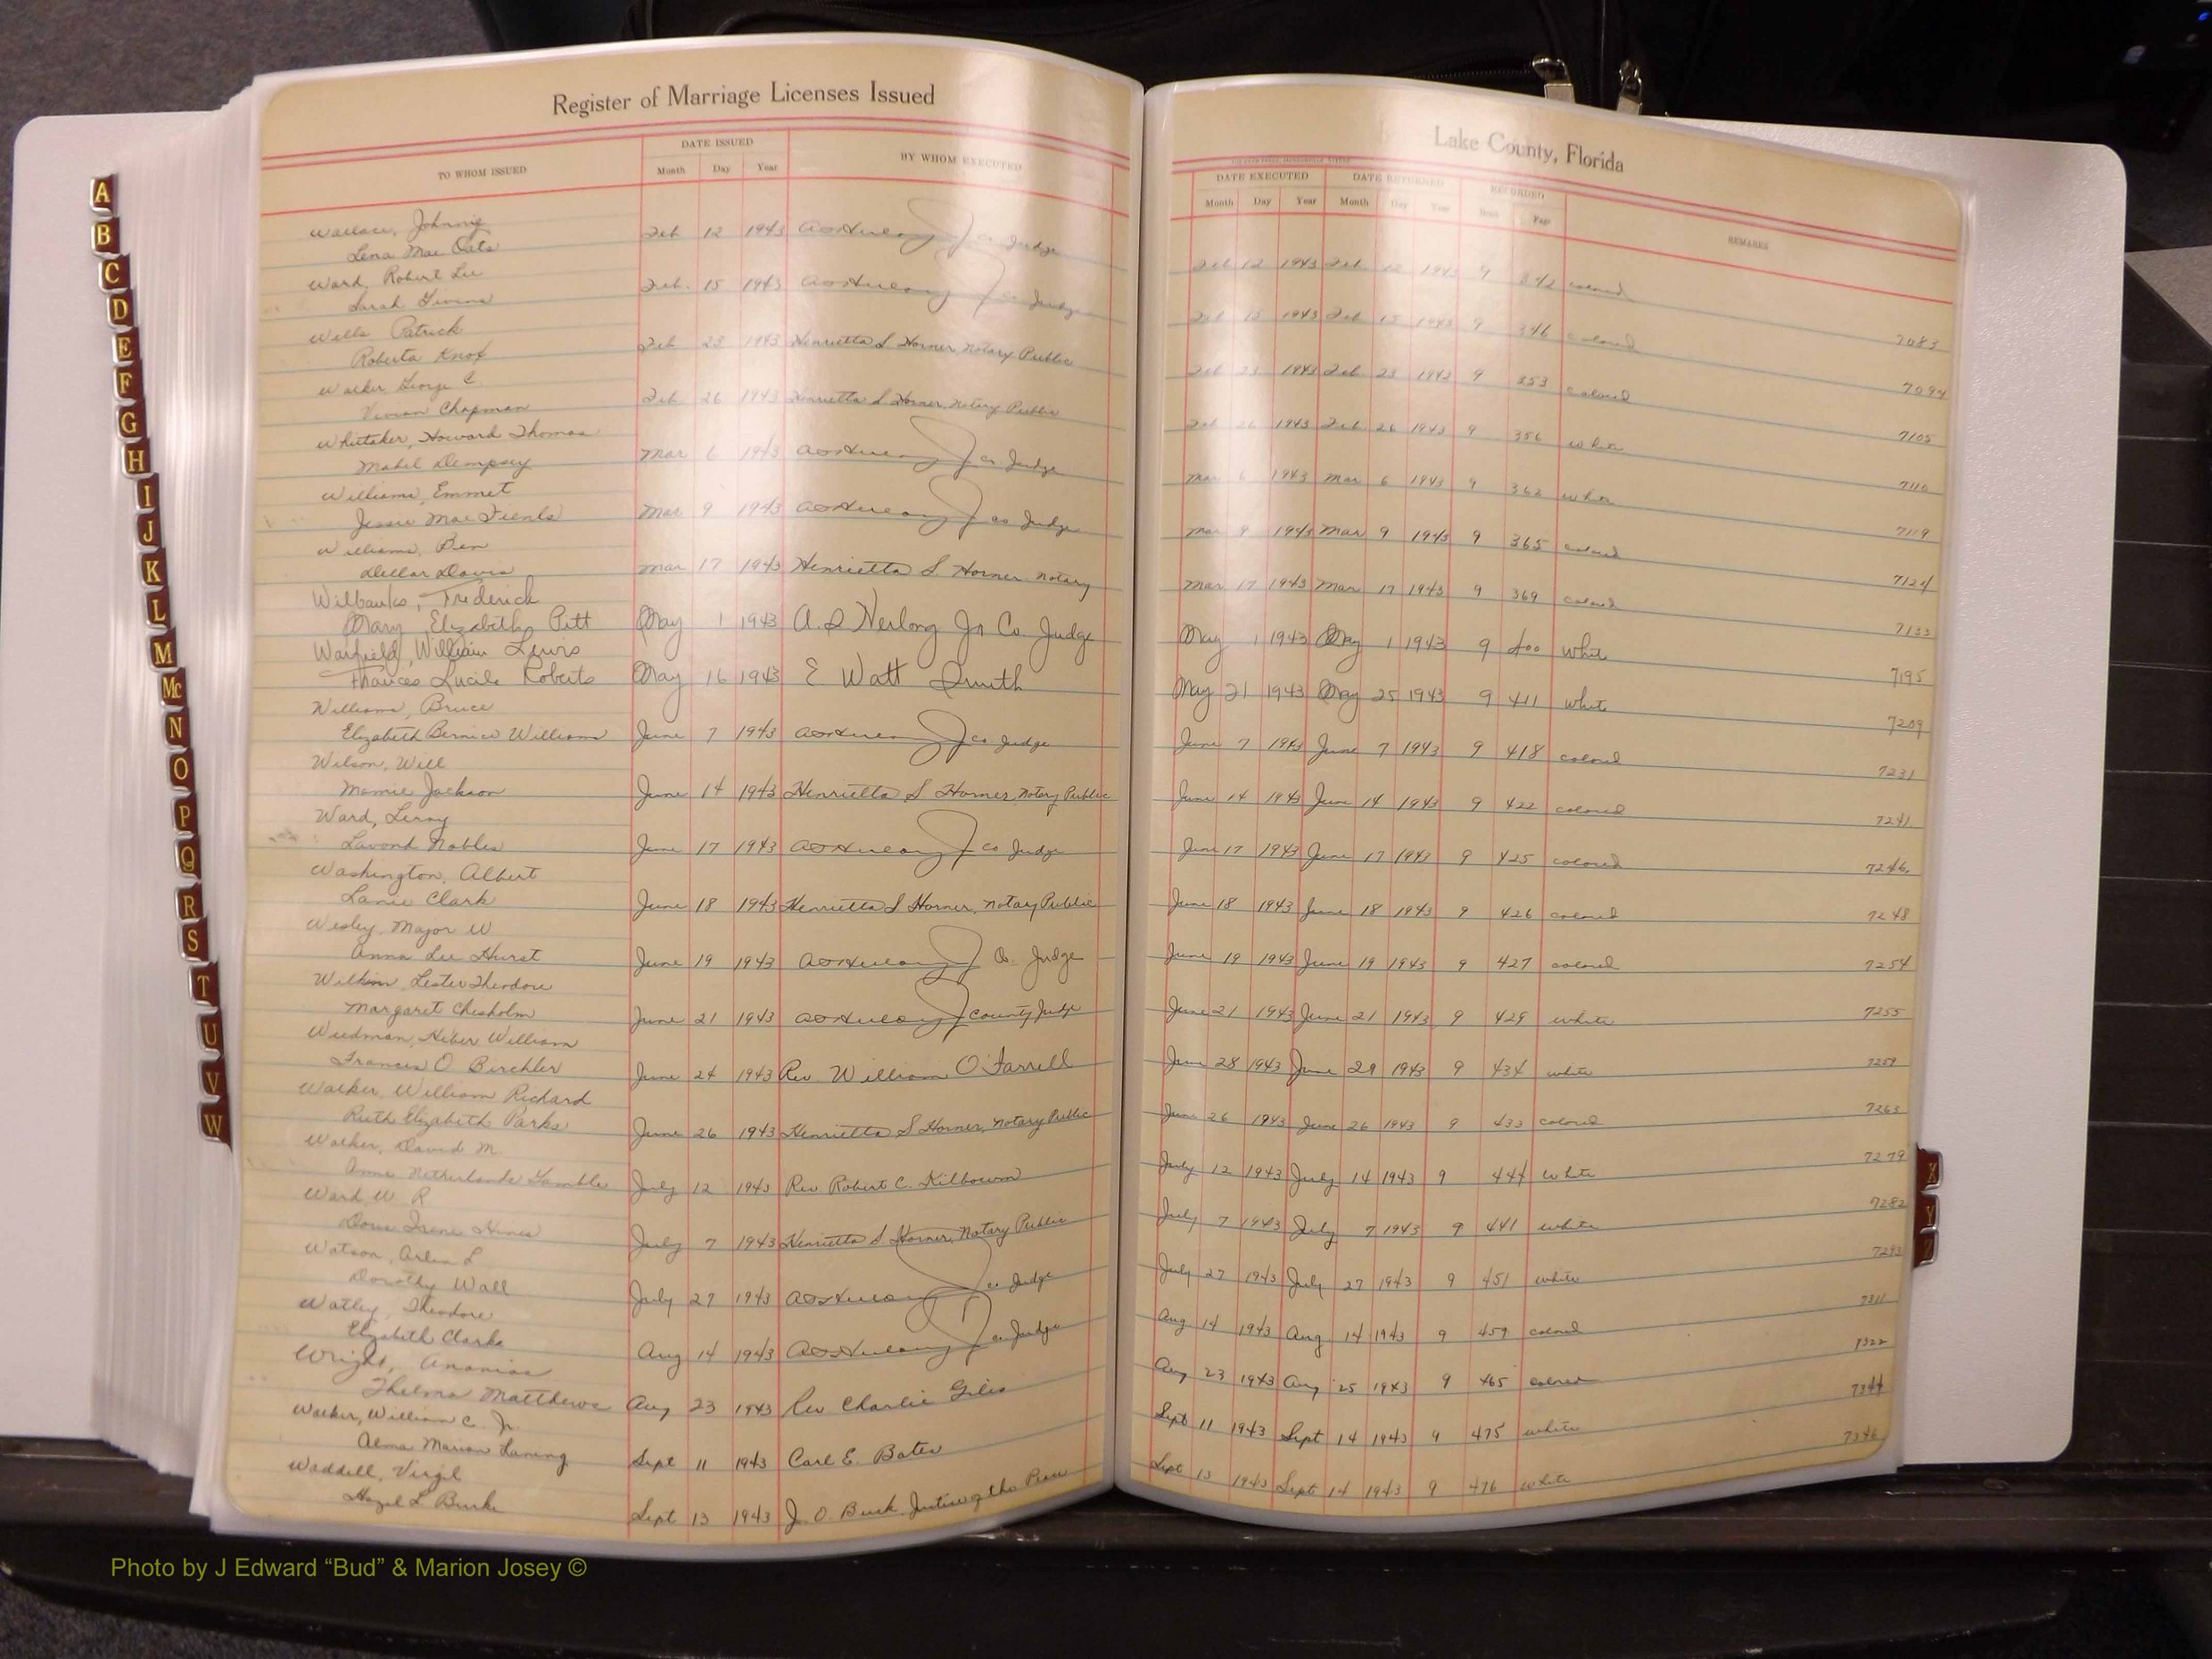 Register of Marriage Licenses Issued
Lake County, Florida
TO WHOM ISSUED
DATE ISSUED
Month Day Year
BY WHOM EXECUTED
DATE EXECUTED
Month Day Year
DATE RETURNED
Month Day Year
RECORDED
Book Page
REMARKS
Wallace, Johnnie
Lena Mae Oats Feb 12 1943 Co Judge Feb 12 1943 Feb 12 1943 9 342 colored 7083
Ward, Robert Lee
Sarah Feb. 15 1943 Co Judge Feb 15 1943 Feb 15 1943 9 346 colored 7094
Wells Patrick
Roberta Knox Feb 23 1943 Henrietta S Horner, Notary Public Feb 23 1943 Feb 23 1943 9 353 colored 7105
Walker George C.
Vivian Chapman Feb 26 1943 Henrietta S Horner, Notary Public Feb 26 1943 Feb 26 1943 9 356 7110
Whittaker, Howard Thomas
Mabel Dempsey Mar 6 1943 Co. Judge Mar 6 1943 Mar 6 1943 9 362 7119
Williams, Emmet
Jessie Mae Mar 9 1943 Co Judge Mar 9 1943 Mar 9 1943 9 365 colored 7124
Williams, Ben
Dellar Davis Mar 17 1943 Henrietta S Horner Notary Mar 17 1943 Mar 17 1943 9 369 colored 7133
Wilbanks, Frederick
Mary Elizabeth Pitt May 1 1943 A. S Herlong Jr Co Judge May 1 1943 May 1 1943 9 400 White 7195
Warfield, William Lewis
Frances Lucile Roberts May 16 1943 E Watt Smith May 21 1943 May 25 1943 9 411 white 7209
Williams, Bruce
Elizabeth Bernice Williams June 7 1943 Co Judge June 7 1943 June 7 1943 9 418 colored 7231
Wilson, Will
Mamie Jackson June 14 1943 Henrietta S Horner, Notary Public June 14 1943 June 14 1943 9 422 colored 7241
Ward, Leroy
Nobles June 17 1943 Co Judge June 17 1943 June 17 1943 9 425 colored 7246
Washington, Albert
Clark June 18 1943 Henrietta S Horner, Notary Public June 18 1943 June 18 1943 9 426 colored 7248
Wesley, Major W
Anna Lee Hurst June 19 1943 Co. Judge June 19 1943 June 19 1943 9 427 colored 7254
Lester Theodore
Margaret Chisholm June 21 1943 County Judge June 21 1943 June 21 1943 9 429 white 7255
Weedman, Heber William
Frances O. Birchler June 24 1943 Rev. William O'Farrell June 28 1943 June 29 1943 9 434 white 7259
Walker, William Richard
Ruth Elizabeth Parks June 26 1943 Henrietta S Horner, Notary Public June 26 1943 June 26 1943 9 433 colored 7263
Walker, David M.
Anne Netherlands Gamble July 12 1943 Rev Robert C. Kilbourn July 12 1943 July 14 1943 9 444 White 7279
Ward W R
Doris Irene Hines July 7 1943 Henrietta S Horner, Notary Public July 7 1943 July 7 1943 9 441 white 7282
Watson, L
Dorothy Wall July 27 1943 Co Judge July 27 1943 July 27 1943 9 451 white 7293
Watley, Theodore
Elizabeth Clarke Aug 14 1943 Co Judge Aug 14 1943 Aug 14 1943 9 459 colored 7311
Wright, Ananias
Thelma Matthews Aug 23 1943 Rev Charlie Giles Aug 23 1943 Aug 25 1943 9 465 colored 7322
Walker, William C. Jr.
Alma Marian Laning Sept 11 1943 Carl E. Bates Sept 11 1943 Sept 14 1943 9 475 white 7344
Waddell, Virgil
Hazel L Burke Sept 13 1943 J. O. Buck Justice of the Peace Sept 13 1943 Sept 14 1943 9 476 White 7346
A
B
C
D
E
F
G
H
I
J
K
L
M
Mc
N
O
P
Q
R
S
T
U
V
W
X
Y
Z
Photo by J Edward “Bud” & Marion Josey ©